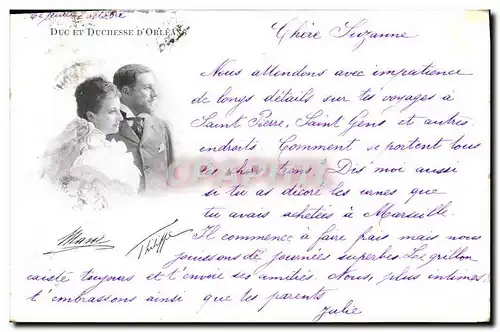 Ce jeudi 2 octobre
DUC ET DUCHESSE D'ORLÉANS
Chère Suzanne
Nous attendons avec impatience
de longs détails sur tes voyages à
Saint Pierre, Saint Gens et autres
endroits. Comment se portent tous
les chers trens? Dis moi aussi
si tu as décoré les urnes que
tu avais achetées à Marseille.
Il commence à faire frais mais nous
jouissons de journées superbes. Le grillon
existe toujours et t'envoie ses amitiés. Nous, plus intimes,
t'embrassons ainsi que tes parents
Julie
Marie
Philippe